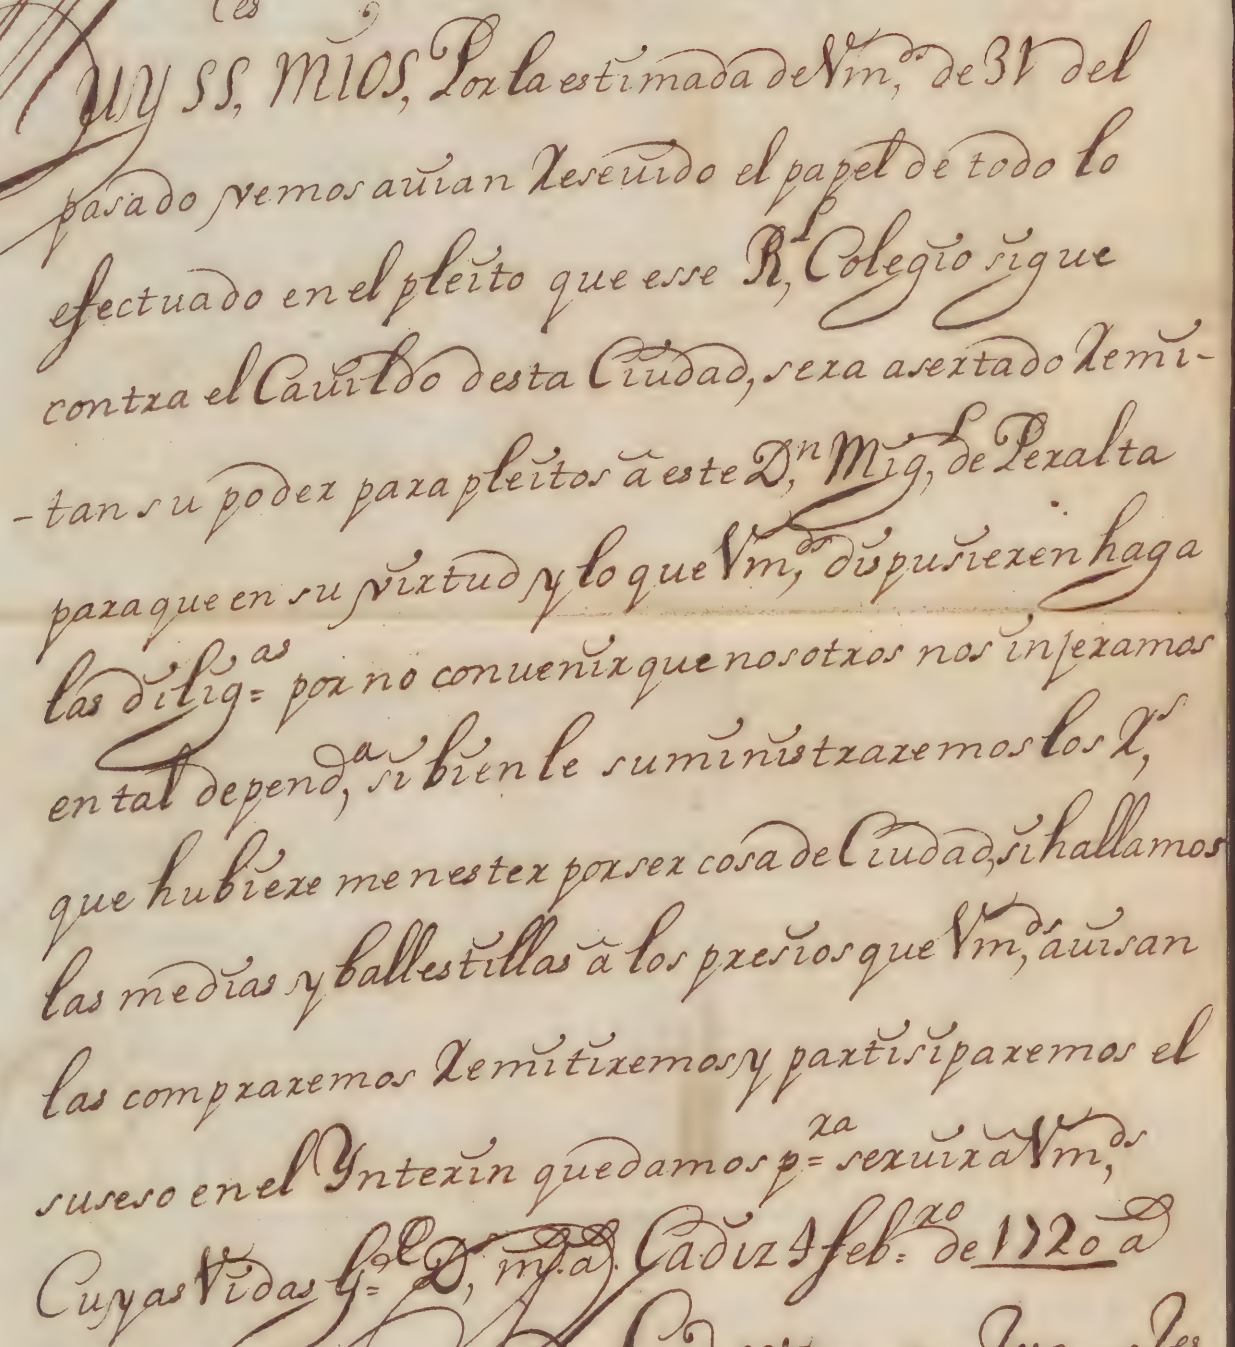 Muy SS.res mios, Por la estimada de Vm,ds de 31 del
pasado vemos auian Reseuido el papel de todo lo
efectuado en el pleito que esse R,l Colegio sigue
contra el Cauildo desta Ciudad, sera asertado Remi-
-tan su poder para pleitos â este D,n Mig,l de Peralta
para que en su virtud y lo que Vm,ds dispusieren haga
las dilig=as por no conuenir que nosotros nos injeramos
en tal depend,a si bien le suministraremos los R,s
que hubiere menester por ser cosa de Ciudad, si hallamos
las medias y ballestillas â los presios que Vm,ds auisan
las compraremos Remitiremos y partisiparemos el
suseso en el Ynterin quedamos p=ra seruir â Vm,ds
Cuyas Vidas g=e D, m,s a,s Cadiz 4 feb=ro de 1720 as